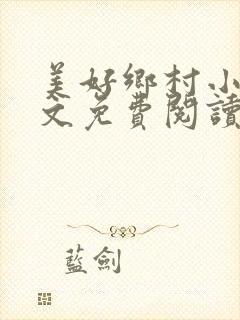 美好鄉村小
文免費閱讀
藍劍